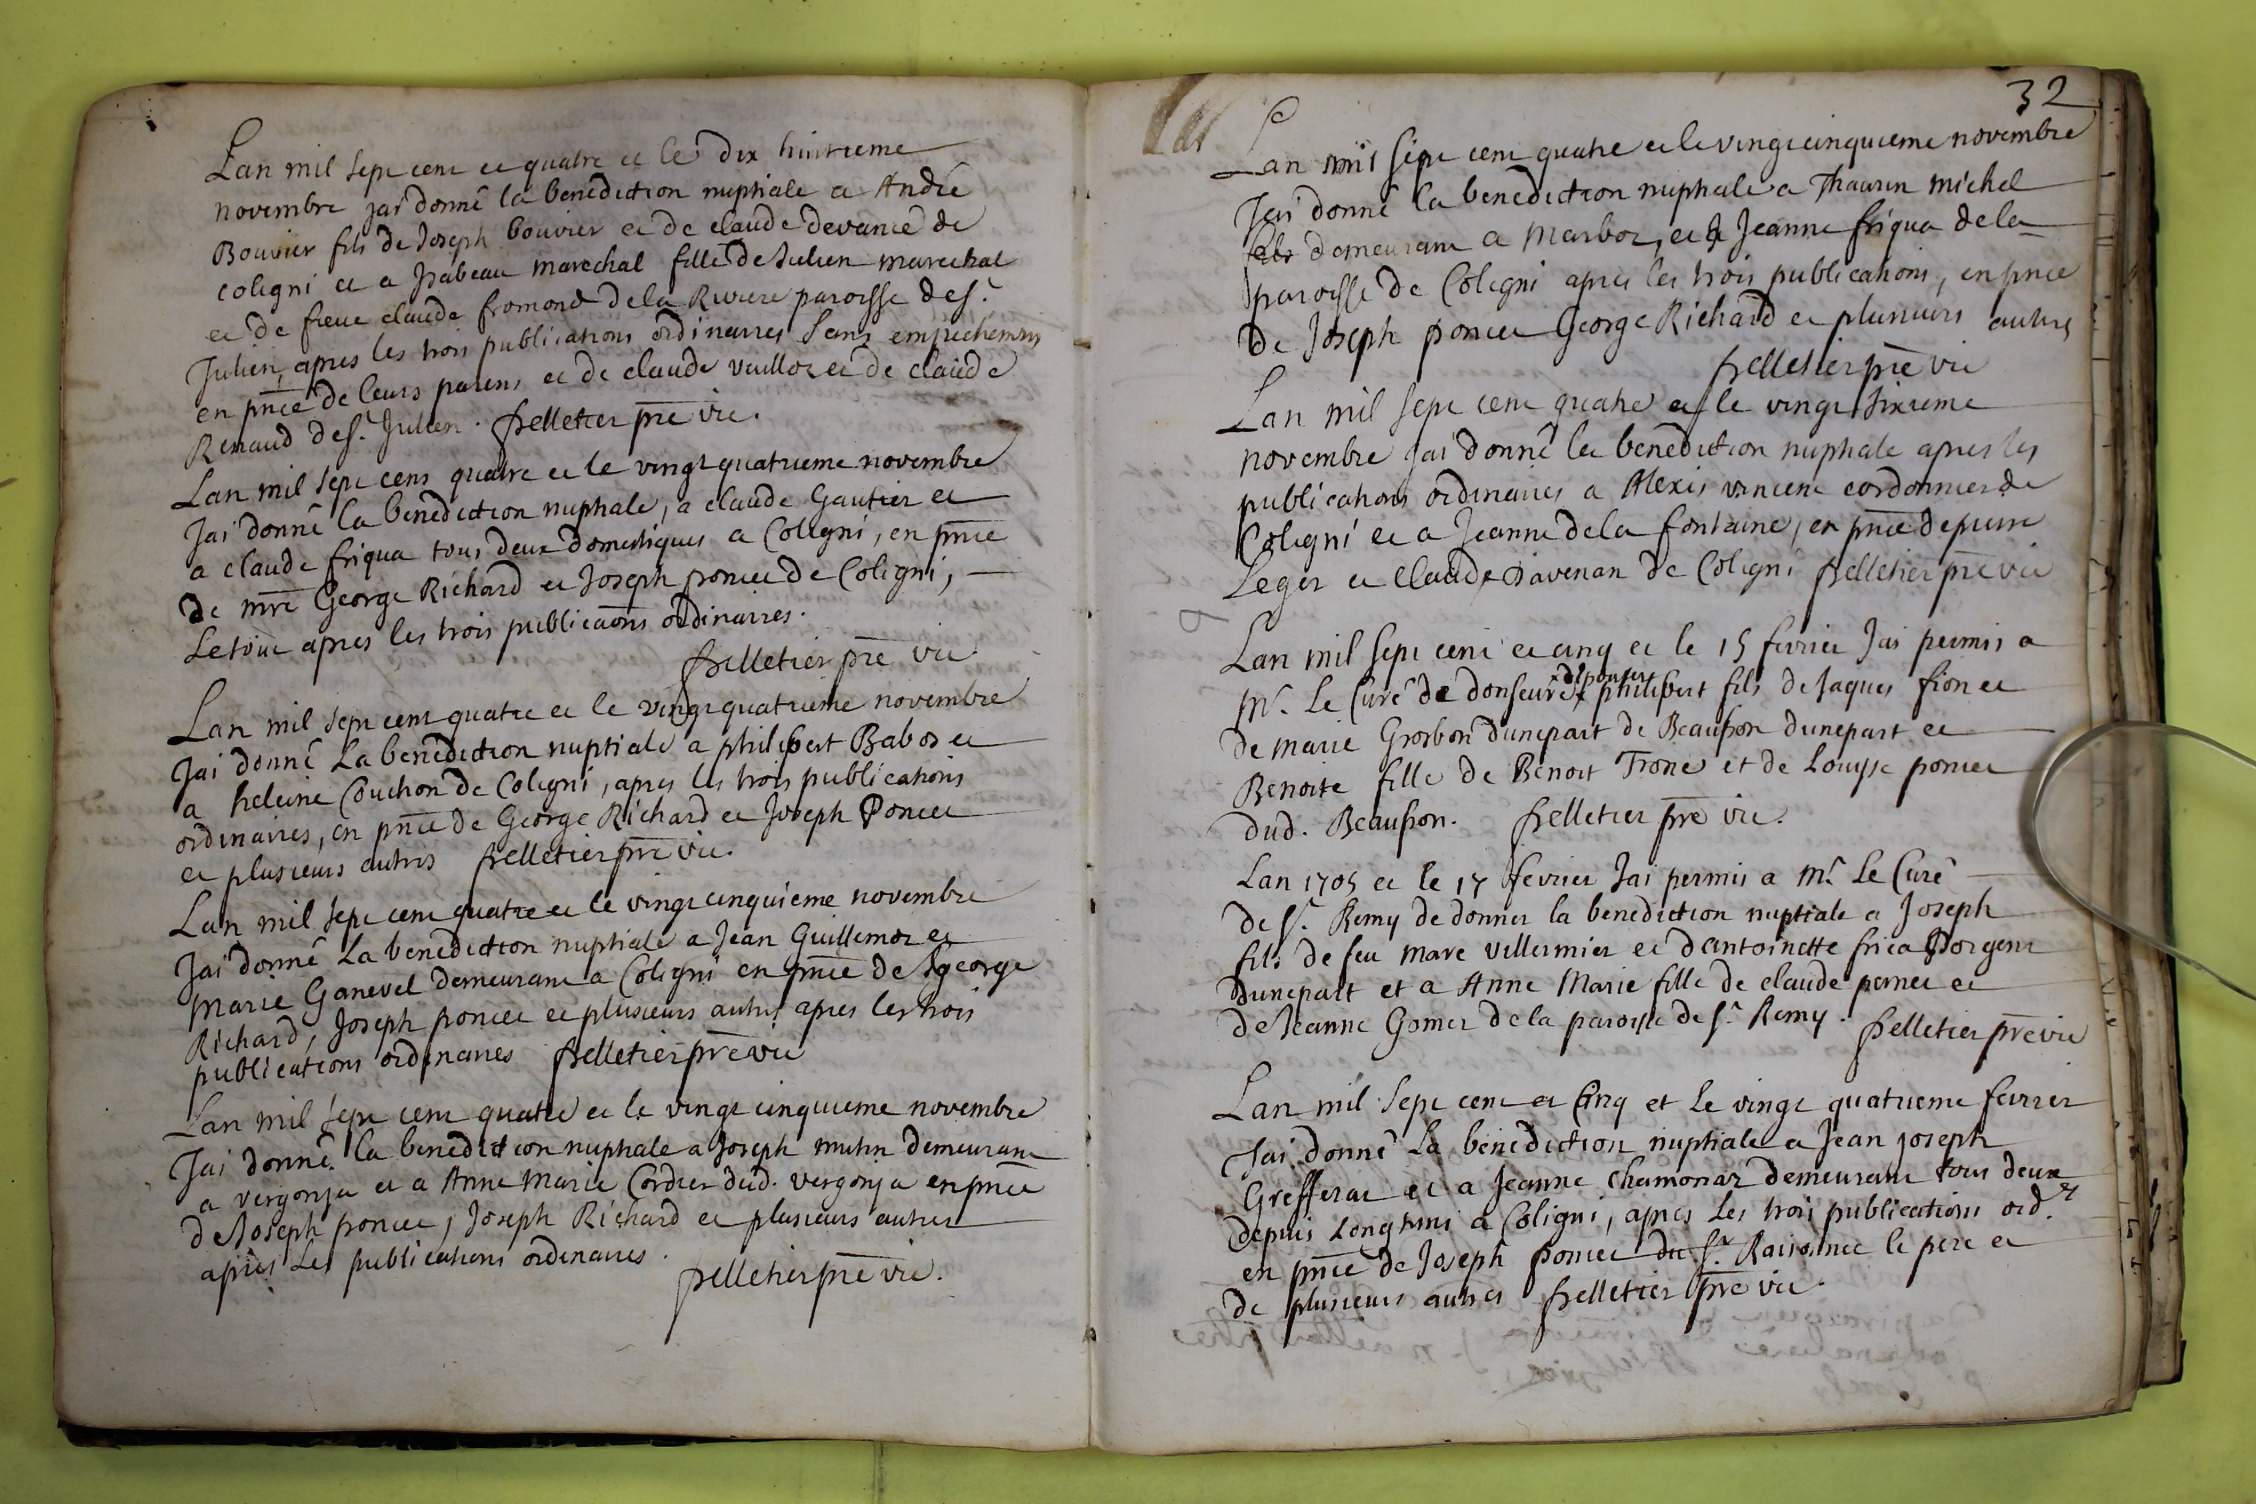 Lan mil sept cent et quatre et le dix huitieme
novembre jai donné la benediction nuptiale a André
Bouvier fils de Joseph bouvier et de claude devance de
coligni et a Isabeau marechal fille de Julien marechal
et de feue claude fromond de la Riviere paroisse de st.
Julien, apres les trois publications ordinaires sans empechemens
en pnce de leurs parens et de claude vuilloz et de claude
Renaud de st. Julien. pelletier pre vic.
Lan mil sept cens quatre et le vingt quatrieme novembre
Jai donné la benediction nuptiale, a claude Gautier et
a claude friqua tous deux domestiques a Coligni, en pnce
de mre George Richard et Joseph poncet de Coligni,
Le tout apres les trois publicaons ordinaires.
pelletier pre vic
Lan mil sept cent quatre et le vingt quatrieme novembre
Jai donné La benediction nuptiale a philibert Baboz et
a heleine Couchon de Coligni, apres les trois publications
ordinaires, en pnce de George Richard et Joseph Poncet
et plusieurs autres pelletier pre vic.
Lan mil sept cent quatre et le vingt cinquieme novembre
Jai donné La benediction nuptiale a Jean Guillemoz et
Marie Ganevel demeurant a Coligni en pnce de George
Richard, Joseph poncet et plusieurs autres apres les trois
publications ordinaires pelletier pre vic
Lan mil sept cent quatre et le vingt cinquieme novembre
Jai donné la benediction nuptiale a Joseph mutin demeurant
a vergonja et a Anne Marie Cordier dud. vergonja en pnce
de Joseph poncet, Joseph Richard et plusieurs autres
apres Les publications ordinaires.
pelletier pre vic.
32
Lan mil sept cent quatre et le vingt cinquieme novembre
Jai donné la benediction nuptiale a Thaurin michel
fils demeurant a Marboz, et a Jeanne friqua de la
paroisse de Coligni apres les trois publications, en pnce
de Joseph poncet George Richard et plusieurs autres
pelletier pre vic
Lan mil sept cent quatre et le vingt sixieme
novembre jai donné la benediction nuptiale apres les
publications ordinaires a Alexis vincent cordonnier de
Coligni et a Jeanne de la fontaine, en pnce de pierre
Leger et Claude davenan de Coligni pelletier pre vic
Lan mil sept cent et cinq et le 15 fevrier Jai permis a
despouser
mr. Le Curé de donseure philibert fils de Jaques fion et
de marie Grosbon dunepart de Beaupon dunepart et
Benoite fille de Benoit Trone et de Louyse poncet
dud. Beaupon. pelletier pre vic.
Lan 1705 et le 17 fevrier Jai permis a Mr. Le Curé
de st. Remy de donner la benediction nuptiale a Joseph
fils de feu marc villermier et dantoinette frica Dorgent
dunepart et a Anne Marie fille de claude pernet et
de Jeanne Gomer de la paroisse de st. Remy. pelletier pre vic
Lan mil sept cent et Cinq et Le vingt quatrieme fevrier
Jai donné La benediction nuptiale a Jean joseph
Grefferat et a Jeanne Chamonaz demeurant tous deux
depuis Longtems a Coligni, apres Les trois publications ord.
en pnce de Joseph Poncet du sr. le pere et
de plusieurs autres pelletier pre vic.